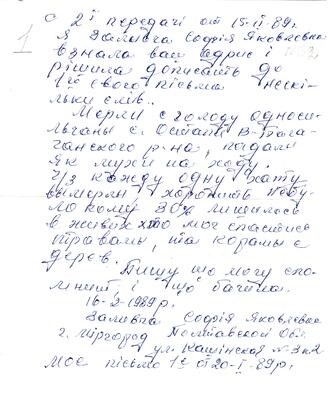 1
с 2ї передачі от 15-ІІ-89г.
Я Заливча Софія Яковлевна
взнала ваш адрис і
рішила дописать до
1го свого пісьма нескі-
льки слів.
Мерли с голоду односи-
льчаны с. Остапи В-Бага-
чанского р-на, падали
як мухи на ходу.
Ч/з каждую одну хату
вымерли хоронить небу-
ло кому 30% лишилось
в живих хто мог спастись
травами, та корами с
дерев.
Пишу що могу спо-
мнит, і що бачила.
16-2-1989 р.
Заливча Софія Яковлевна
г. Міргород Полтавской Обл.
ул. Кашінская н-3 к2
моє пісьмо 1є от 20-І-89р.